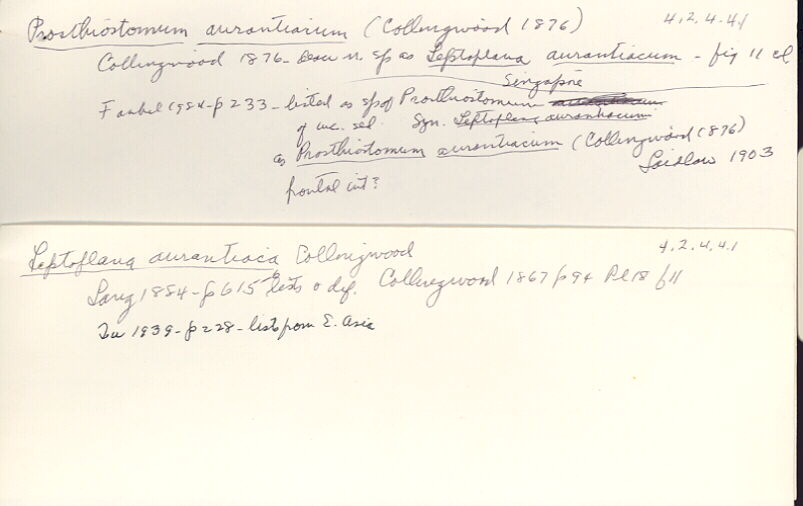 Prosthiostomum aurantiacum (Collingwood 1876) 4.2.4.4.1
Collingwood 1876 - Descr n. sp as Leptoplana aurantiacum - fig 11 col
Singapore
Faubel 1984 - p 233 - listed as sp of Prosthiostomum
of inc. sed. Syn. Leptoplana aurantiacum
as Prosthiostomum aurantiacum (Collingwood 1876)
Laidlaw 1903
frontal int?
Leptoplana aurantiaca Collingwood 4.2.4.4.1
Lang 1884 - p 615 - lists & def. Collingwood 1867 p 94 Pl 18 f 11
1939 - p 228 - lists from E. Asia